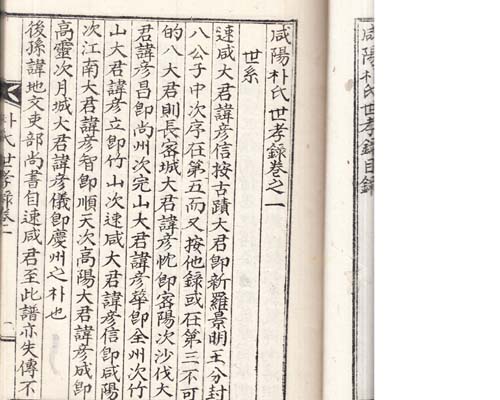 咸陽朴氏世孝錄目錄
咸陽朴氏世孝錄卷之一
世系
速咸大君諱彦信按古蹟大君卽新羅景明王分封
八公子中次序在第五而又按他錄或在第三不可
的八大君則長密城大君諱彦忱卽密陽次沙伐大
君諱彦昌卽尚州次完山大君諱彦華卽全州次竹
山大君諱彦立卽竹山次速咸大君諱彦信卽咸陽
次江南大君諱彦智卽順天次高陽大君諱彦成卽
高靈次月城大君諱彦儀卽慶州之朴也
後孫諱地文吏部尚書自速咸君至此譜亦失傳不
朴氏世孝錄卷一